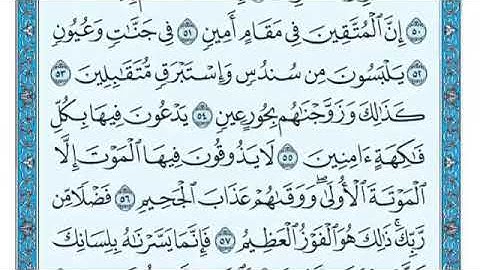 ٥٠ إِنَّ ٱلْمُتَّقِينَ فِى مَقَامٍ أَمِينٍ ٥١ فِى جَنَّٰتٍ وَعُيُونٍ
٥٢ يَلْبَسُونَ مِن سُندُسٍ وَإِسْتَبْرَقٍ مُّتَقَٰبِلِينَ ٥٣
كَذَٰلِكَ وَزَوَّجْنَٰهُم بِحُورٍ عِينٍ ٥٤ يَدْعُونَ فِيهَا بِكُلِّ
فَٰكِهَةٍ ءَامِنِينَ ٥٥ لَا يَذُوقُونَ فِيهَا ٱلْمَوْتَ إِلَّا
ٱلْمَوْتَةَ ٱلْأُولَىٰ ۖ وَوَقَىٰهُمْ عَذَابَ ٱلْجَحِيمِ ٥٦ فَضْلًا مِّن
رَّبِّكَ ۚ ذَٰلِكَ هُوَ ٱلْفَوْزُ ٱلْعَظِيمُ ٥٧ فَإِنَّمَا يَسَّرْنَٰهُ بِلِسَانِكَ